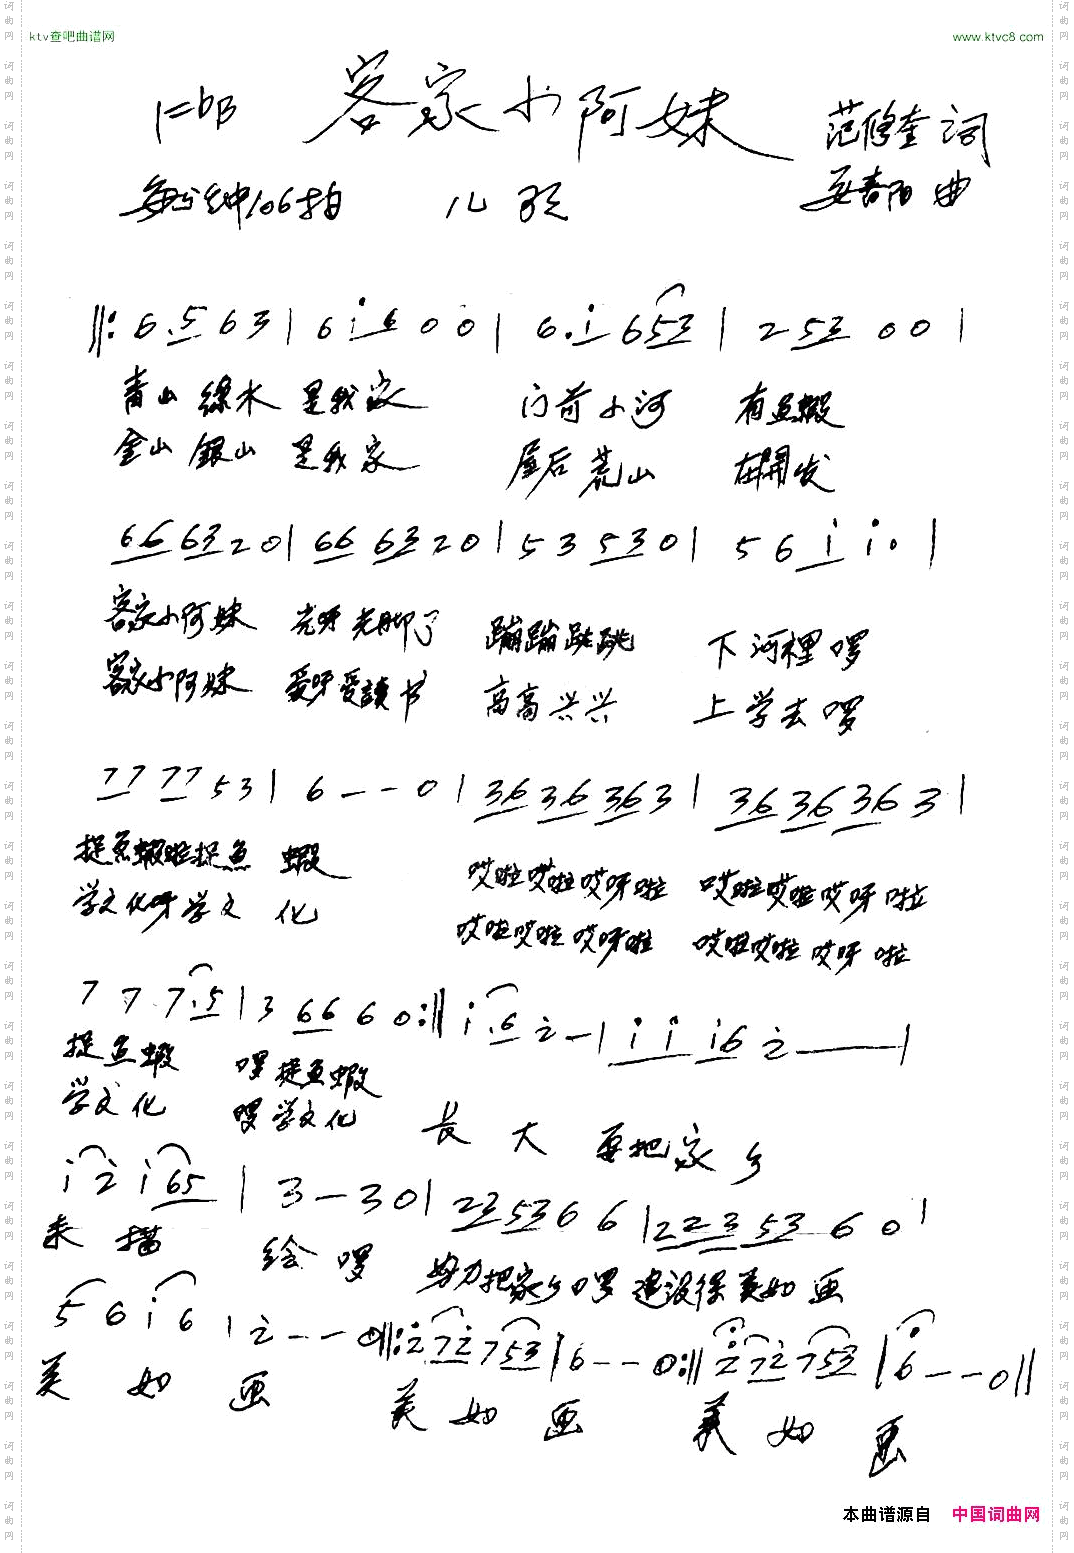 ktv查吧曲谱网 www.ktvc8.com
1=bB 客家小阿妹 范修奎 词
每分钟106拍 儿歌 曲
‖: 6. 5 6 3 | 6 i 6 0 0 | 6. i 6 5 3 | 2 5 3 0 0 |
青山 绿水 是我家 门前小河 有鱼蝦
金山 銀山 是我家 屋后荒山 在開发
6 6 6 3 2 0 | 6 6 6 3 2 0 | 5 3 5 3 0 | 5 6 i i 0 |
客家小阿妹 光呀光脚丫 蹦蹦跳跳 下河裡啰
客家小阿妹 爱呀爱讀书 高高兴兴 上学去啰
7 7 7 7 5 3 | 6 - - 0 | 3 6 3 6 3 6 3 | 3 6 3 6 3 6 3 |
捉鱼蝦啦捉鱼 蝦 哎啦哎啦哎呀啦 哎啦哎啦哎呀啦
学文化呀学文 化 哎啦哎啦哎呀啦 哎啦哎啦哎呀啦
7 7 7. 5 | 3 6 6 6 0 :‖ i. 6 2 - | i i i 6 2 — |
捉鱼蝦 啰捉鱼蝦
学文化 啰学文化 长大 要把家乡
i 2 i 6 5 | 3 - 3 0 | 2 3 5 3 6 6 | 2 2 3 5 3 6 0 |
来描 绘啰 努力把家乡啰 建设得美如画
5 6 i 6 | 2 - - 0 ‖: 2 7 2 7 5 3 | 6 - - 0 :‖ 2 7 2 7 5 3 | 6 - - 0 ‖
美如画 美如画 美如画
本曲谱源自 中国词曲网